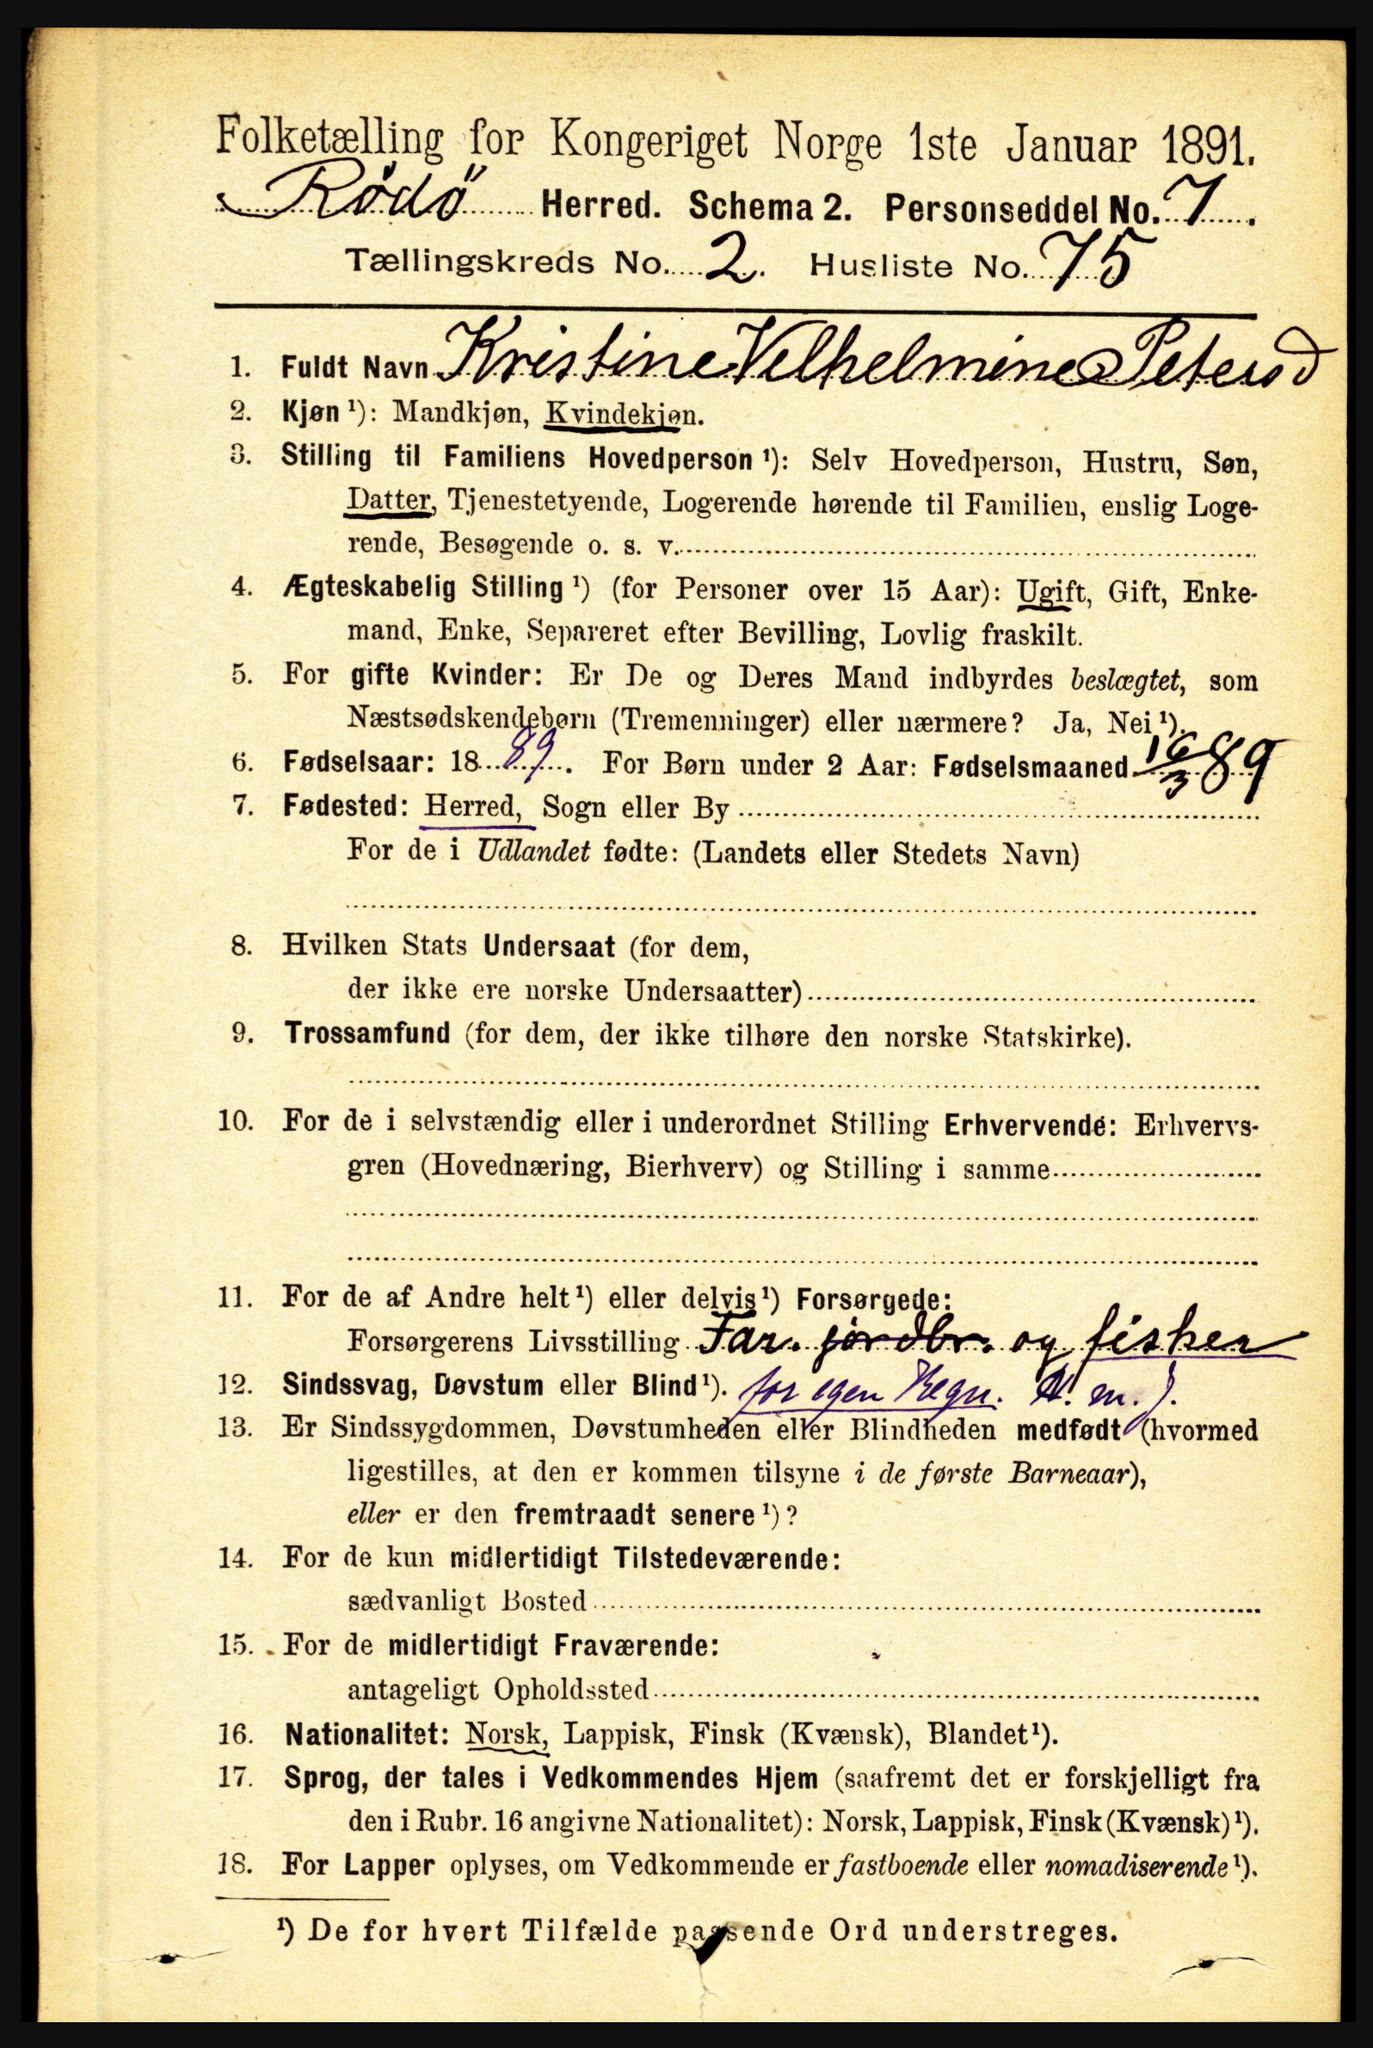 Folketælling for Kongeriget Norge 1ste Januar 1891.
Rödö Herred. Schema 2. Personseddel No. 7.
Tællingskreds No. 2. Husliste No. 75
1. Fuldt Navn Kristine Velhelmine Petersd
2. Kjøn ¹): Mandkjøn, Kvindekjøn.
3. Stilling til Familiens Hovedperson ¹): Selv Hovedperson, Hustru, Søn,
Datter, Tjenestetyende, Logerende hørende til Familien, enslig Loge-
rende, Besøgende o. s. v.
4. Ægteskabelig Stilling ¹) (for Personer over 15 Aar): Ugift, Gift, Enke-
mand, Enke, Separeret efter Bevilling, Lovlig fraskilt.
5. For gifte Kvinder: Er De og Deres Mand indbyrdes beslægtet, som
Næstsødskendebørn (Tremenninger) eller nærmere? Ja, Nei ¹).
6. Fødselsaar: 1889. For Børn under 2 Aar: Fødselsmaaned 16/3 89
7. Fødested: Herred, Sogn eller By
For de i Udlandet fødte: (Landets eller Stedets Navn)
8. Hvilken Stats Undersaat (for dem,
der ikke ere norske Undersaatter)
9. Trossamfund (for dem, der ikke tilhøre den norske Statskirke).
10. For de i selvstændig eller i underordnet Stilling Erhvervende: Erhvervs-
gren (Hovednæring, Bierhverv) og Stilling i samme
11. For de af Andre helt ¹) eller delvis ¹) Forsørgede:
Forsørgerens Livsstilling Far. jordbr. og fisker
12. Sindssvag, Døvstum eller Blind ¹). for egen Regn. H. m. J.
13. Er Sindssygdommen, Døvstumheden eller Blindheden medfødt (hvormed
ligestilles, at den er kommen tilsyne i de første Barneaar),
eller er den fremtraadt senere ¹)?
14. For de kun midlertidigt Tilstedeværende:
sædvanligt Bosted
15. For de midlertidigt Fraværende:
antageligt Opholdssted
16. Nationalitet: Norsk, Lappisk, Finsk (Kvænsk), Blandet ¹).
17. Sprog, der tales i Vedkommendes Hjem (saafremt det er forskjelligt fra
den i Rubr. 16 angivne Nationalitet): Norsk, Lappisk, Finsk (Kvænsk) ¹).
18. For Lapper oplyses, om Vedkommende er fastboende eller nomadiserende ¹).
¹) De for hvert Tilfælde passende Ord understreges.